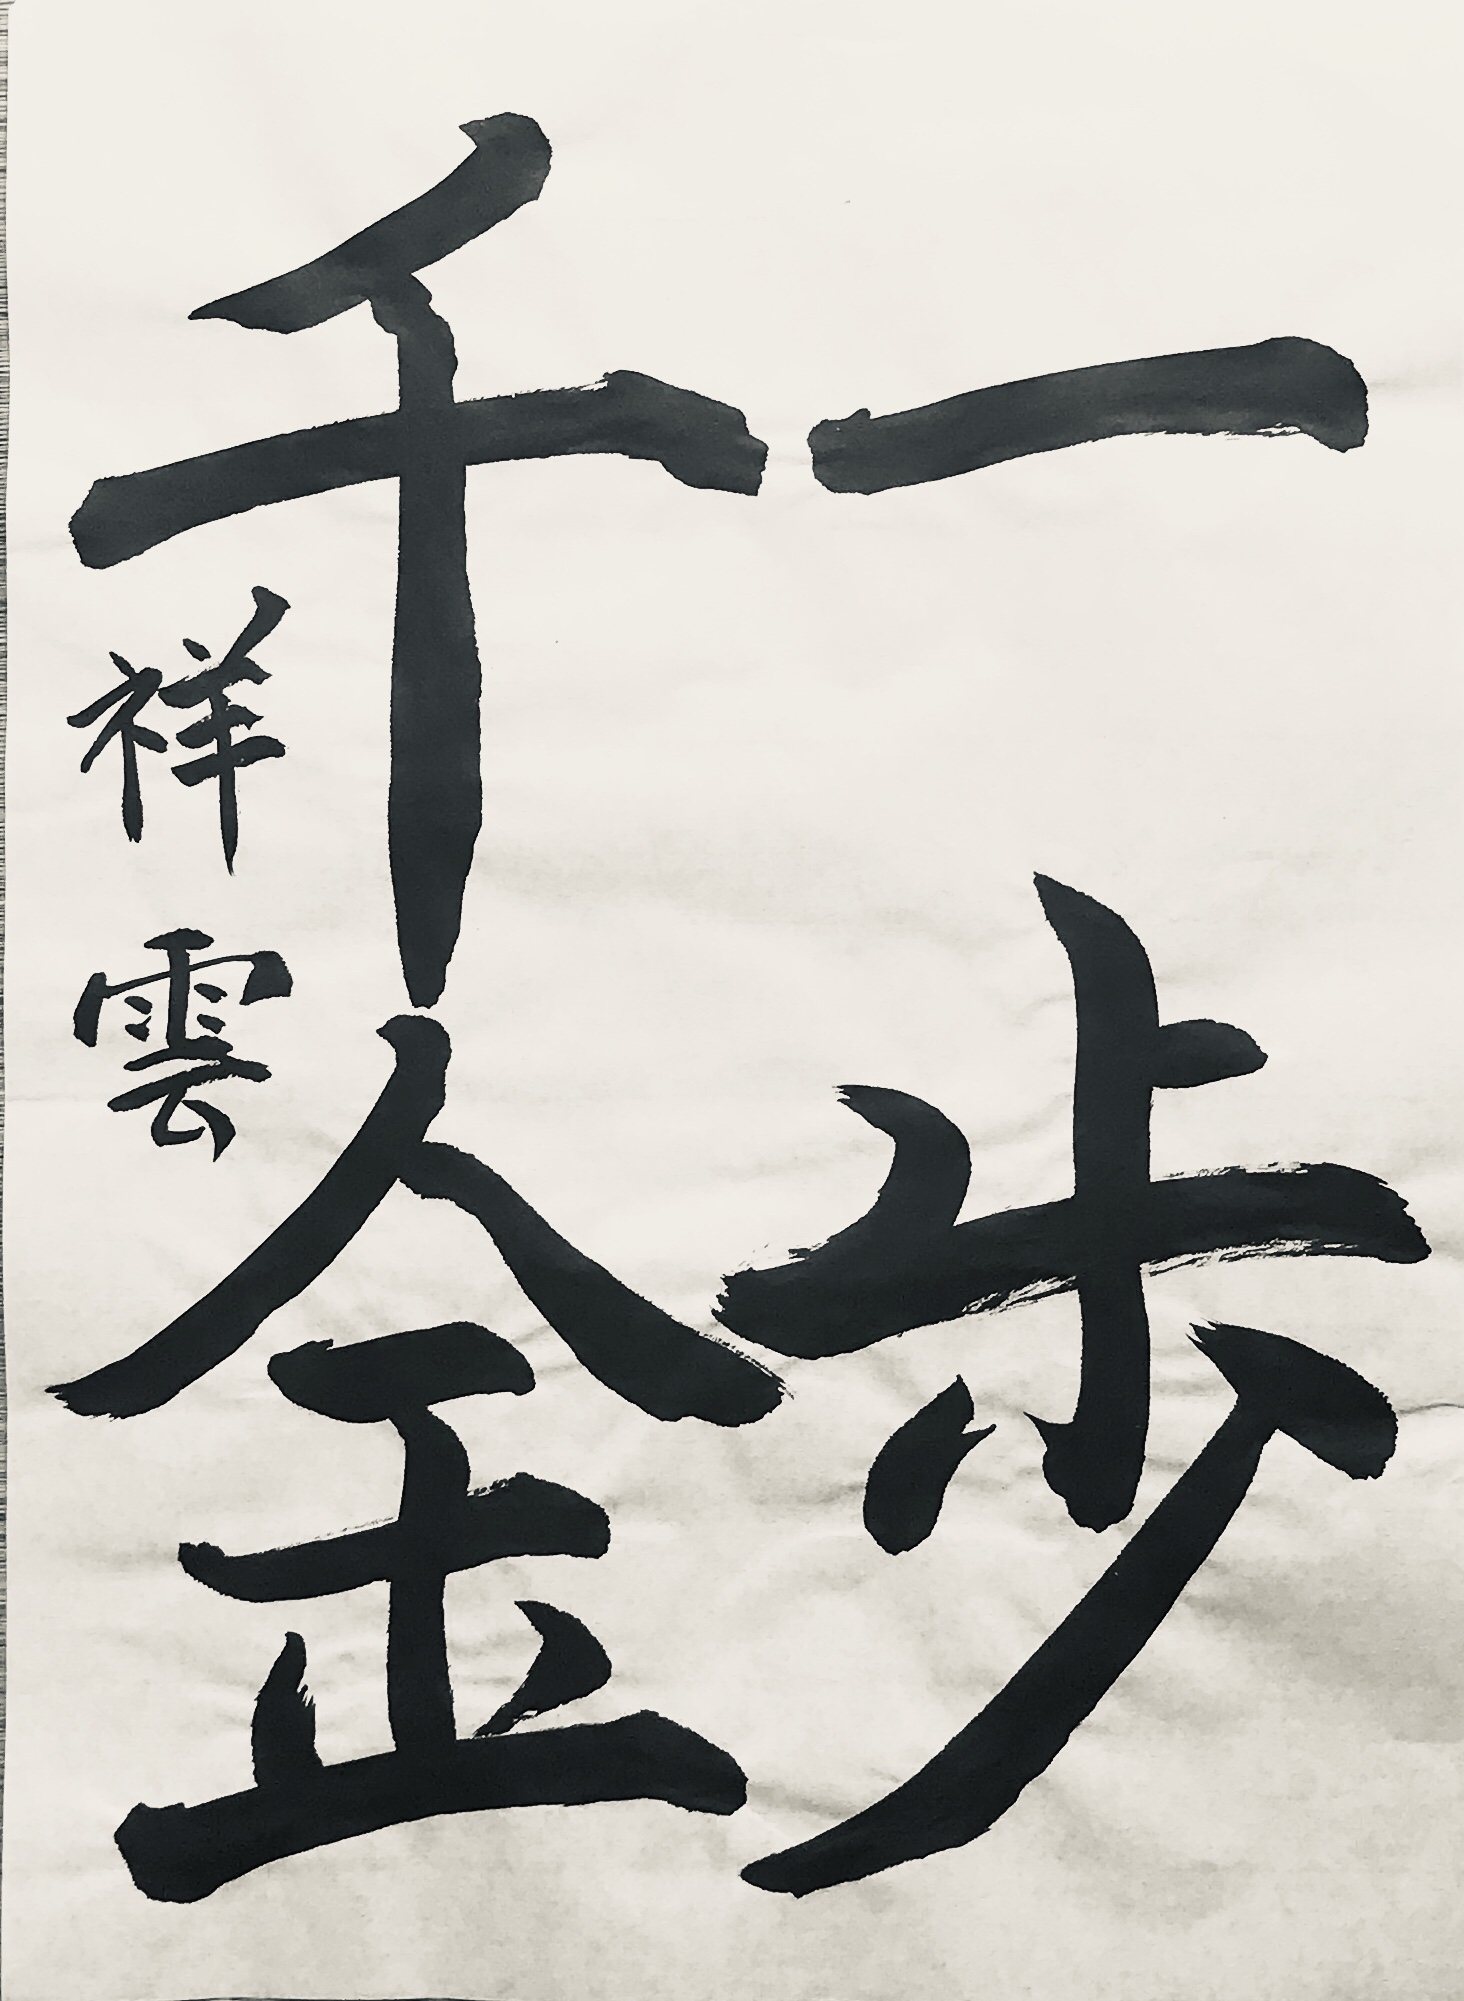 一歩
千金
祥雲